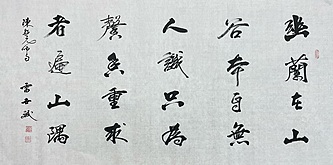 幽蘭在山
谷本自無
人識只為
馨香重求
者遍山隅
陳毅句